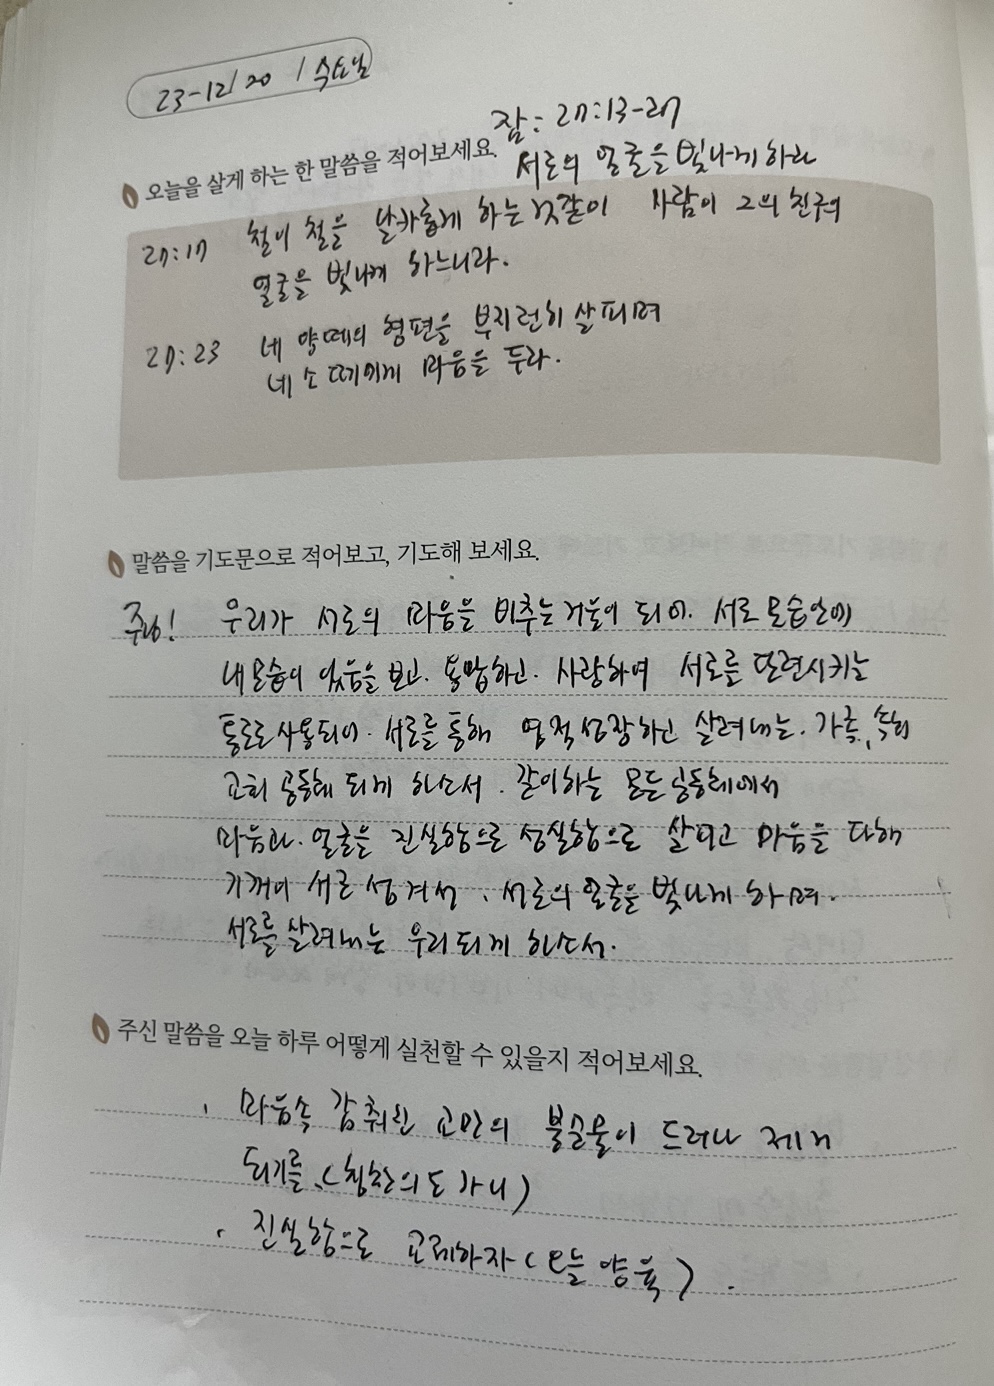 23-12/20 / 수요일
잠: 27:13-27
오늘을 살게 하는 한 말씀을 적어보세요.
서로의 얼굴을 빛나게 하라
27:17 철이 철을 날카롭게 하는 것같이 사람이 그의 친구의
얼굴을 빛나게 하느니라.
27:23 네 양떼의 형편을 부지런히 살피며
네 소떼에게 마음을 두라.
말씀을 기도문으로 적어보고, 기도해 보세요.
주님! 우리가 서로의 마음을 비추는 거울이 되어. 서로 모습안에
내모습이 있음을 보고. 용납하고. 사랑하며 서로를 단련시키는
통로로 사용되어. 서로를 통해 영적성장하고 살려내는. 가족, 속회
교회 공동체 되게 하소서. 같이하는 모든 공동체에서
마음과. 얼굴을 진실함으로 성실함으로 살피고 마음을 다해
기꺼이 서로 섬겨서, 서로의 얼굴을 빛나게 하며.
서로를 살려내는 우리되게 하소서.
주신 말씀을 오늘 하루 어떻게 실천할 수 있을지 적어보세요.
. 마음속 감춰진 교만의 불순물이 드러나 제거
되기를. (칭찬의 도가니)
. 진실함으로 교제하자 (오늘 양육).